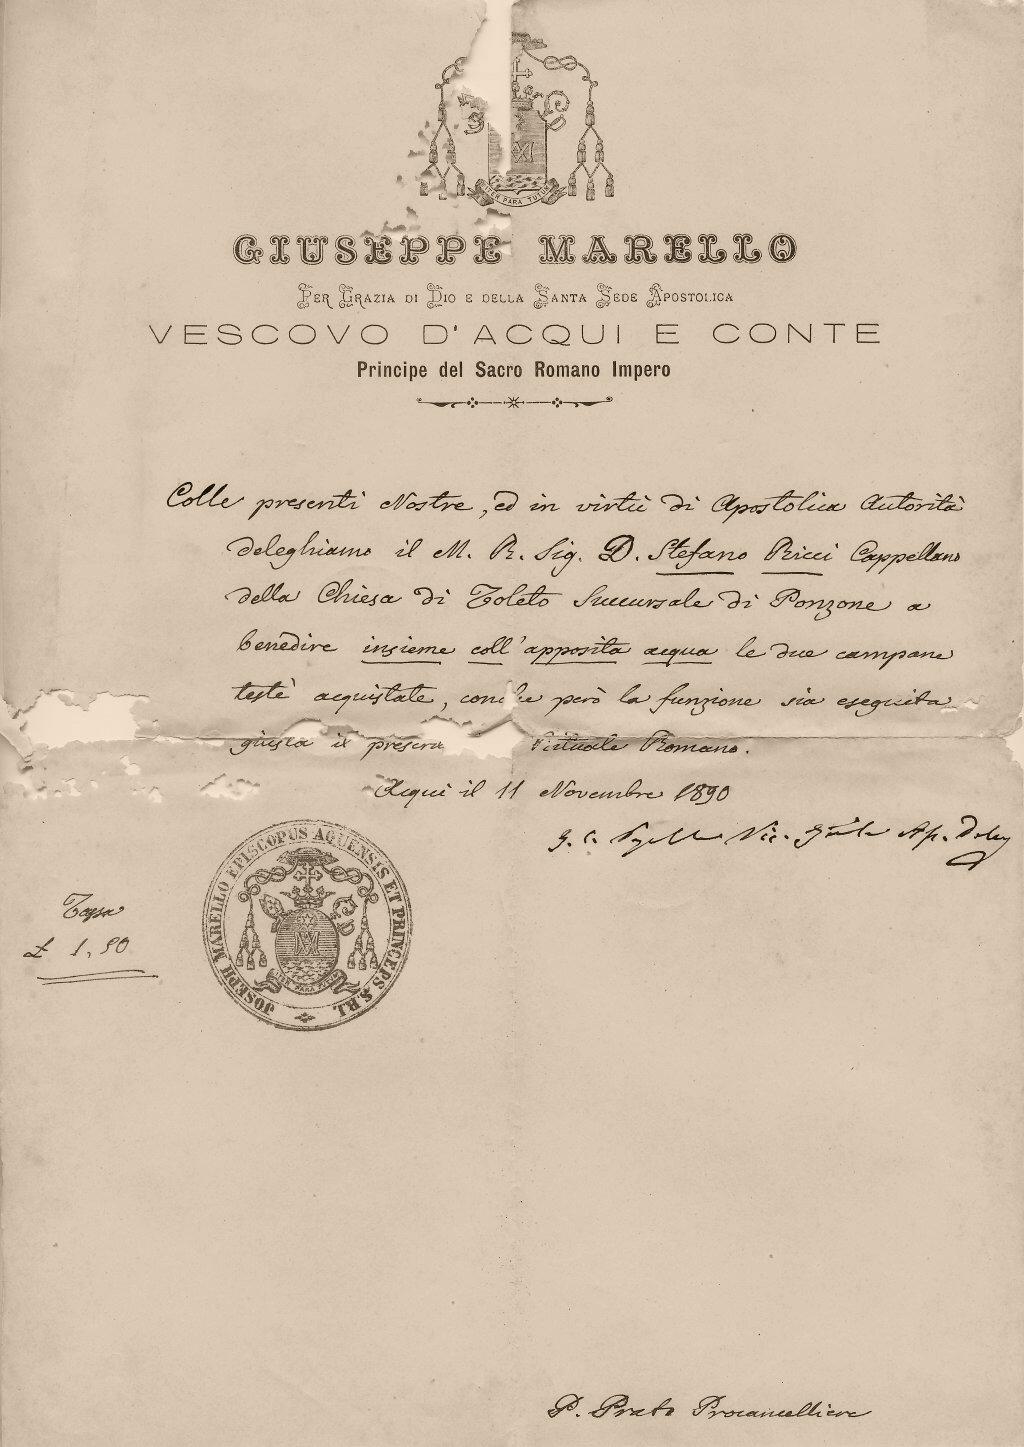 XI
ITER PARA TUTUM
GIUSEPPE MARELLO
PER GRAZIA DI DIO E DELLA SANTA SEDE APOSTOLICA
VESCOVO D'ACQUI E CONTE
Principe del Sacro Romano Impero
Colle presenti Nostre, ed in virtù di Apostolica Autorità
deleghiamo il M. R. Sig. D. Stefano Ricci Cappellano
della Chiesa di Toleto Succursale di Ponzone a
benedire insieme coll'apposita acqua le due campane
testè acquistate, però la funzione sia eseguita
giusta il Rituale Romano.
Acqui il 11 Novembre 1890
Vic. Ap. Deleg
JOSEPH MARELLO EPISCOPUS AQUENSIS ET PRINCEPS S.R.I.
ITER PARA TUTUM
Tassa
£ 1,50
P. Prato Procancelliere